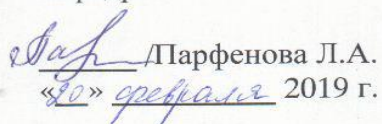 /Парфенова Л.А.
«20» февраля 2019 г.